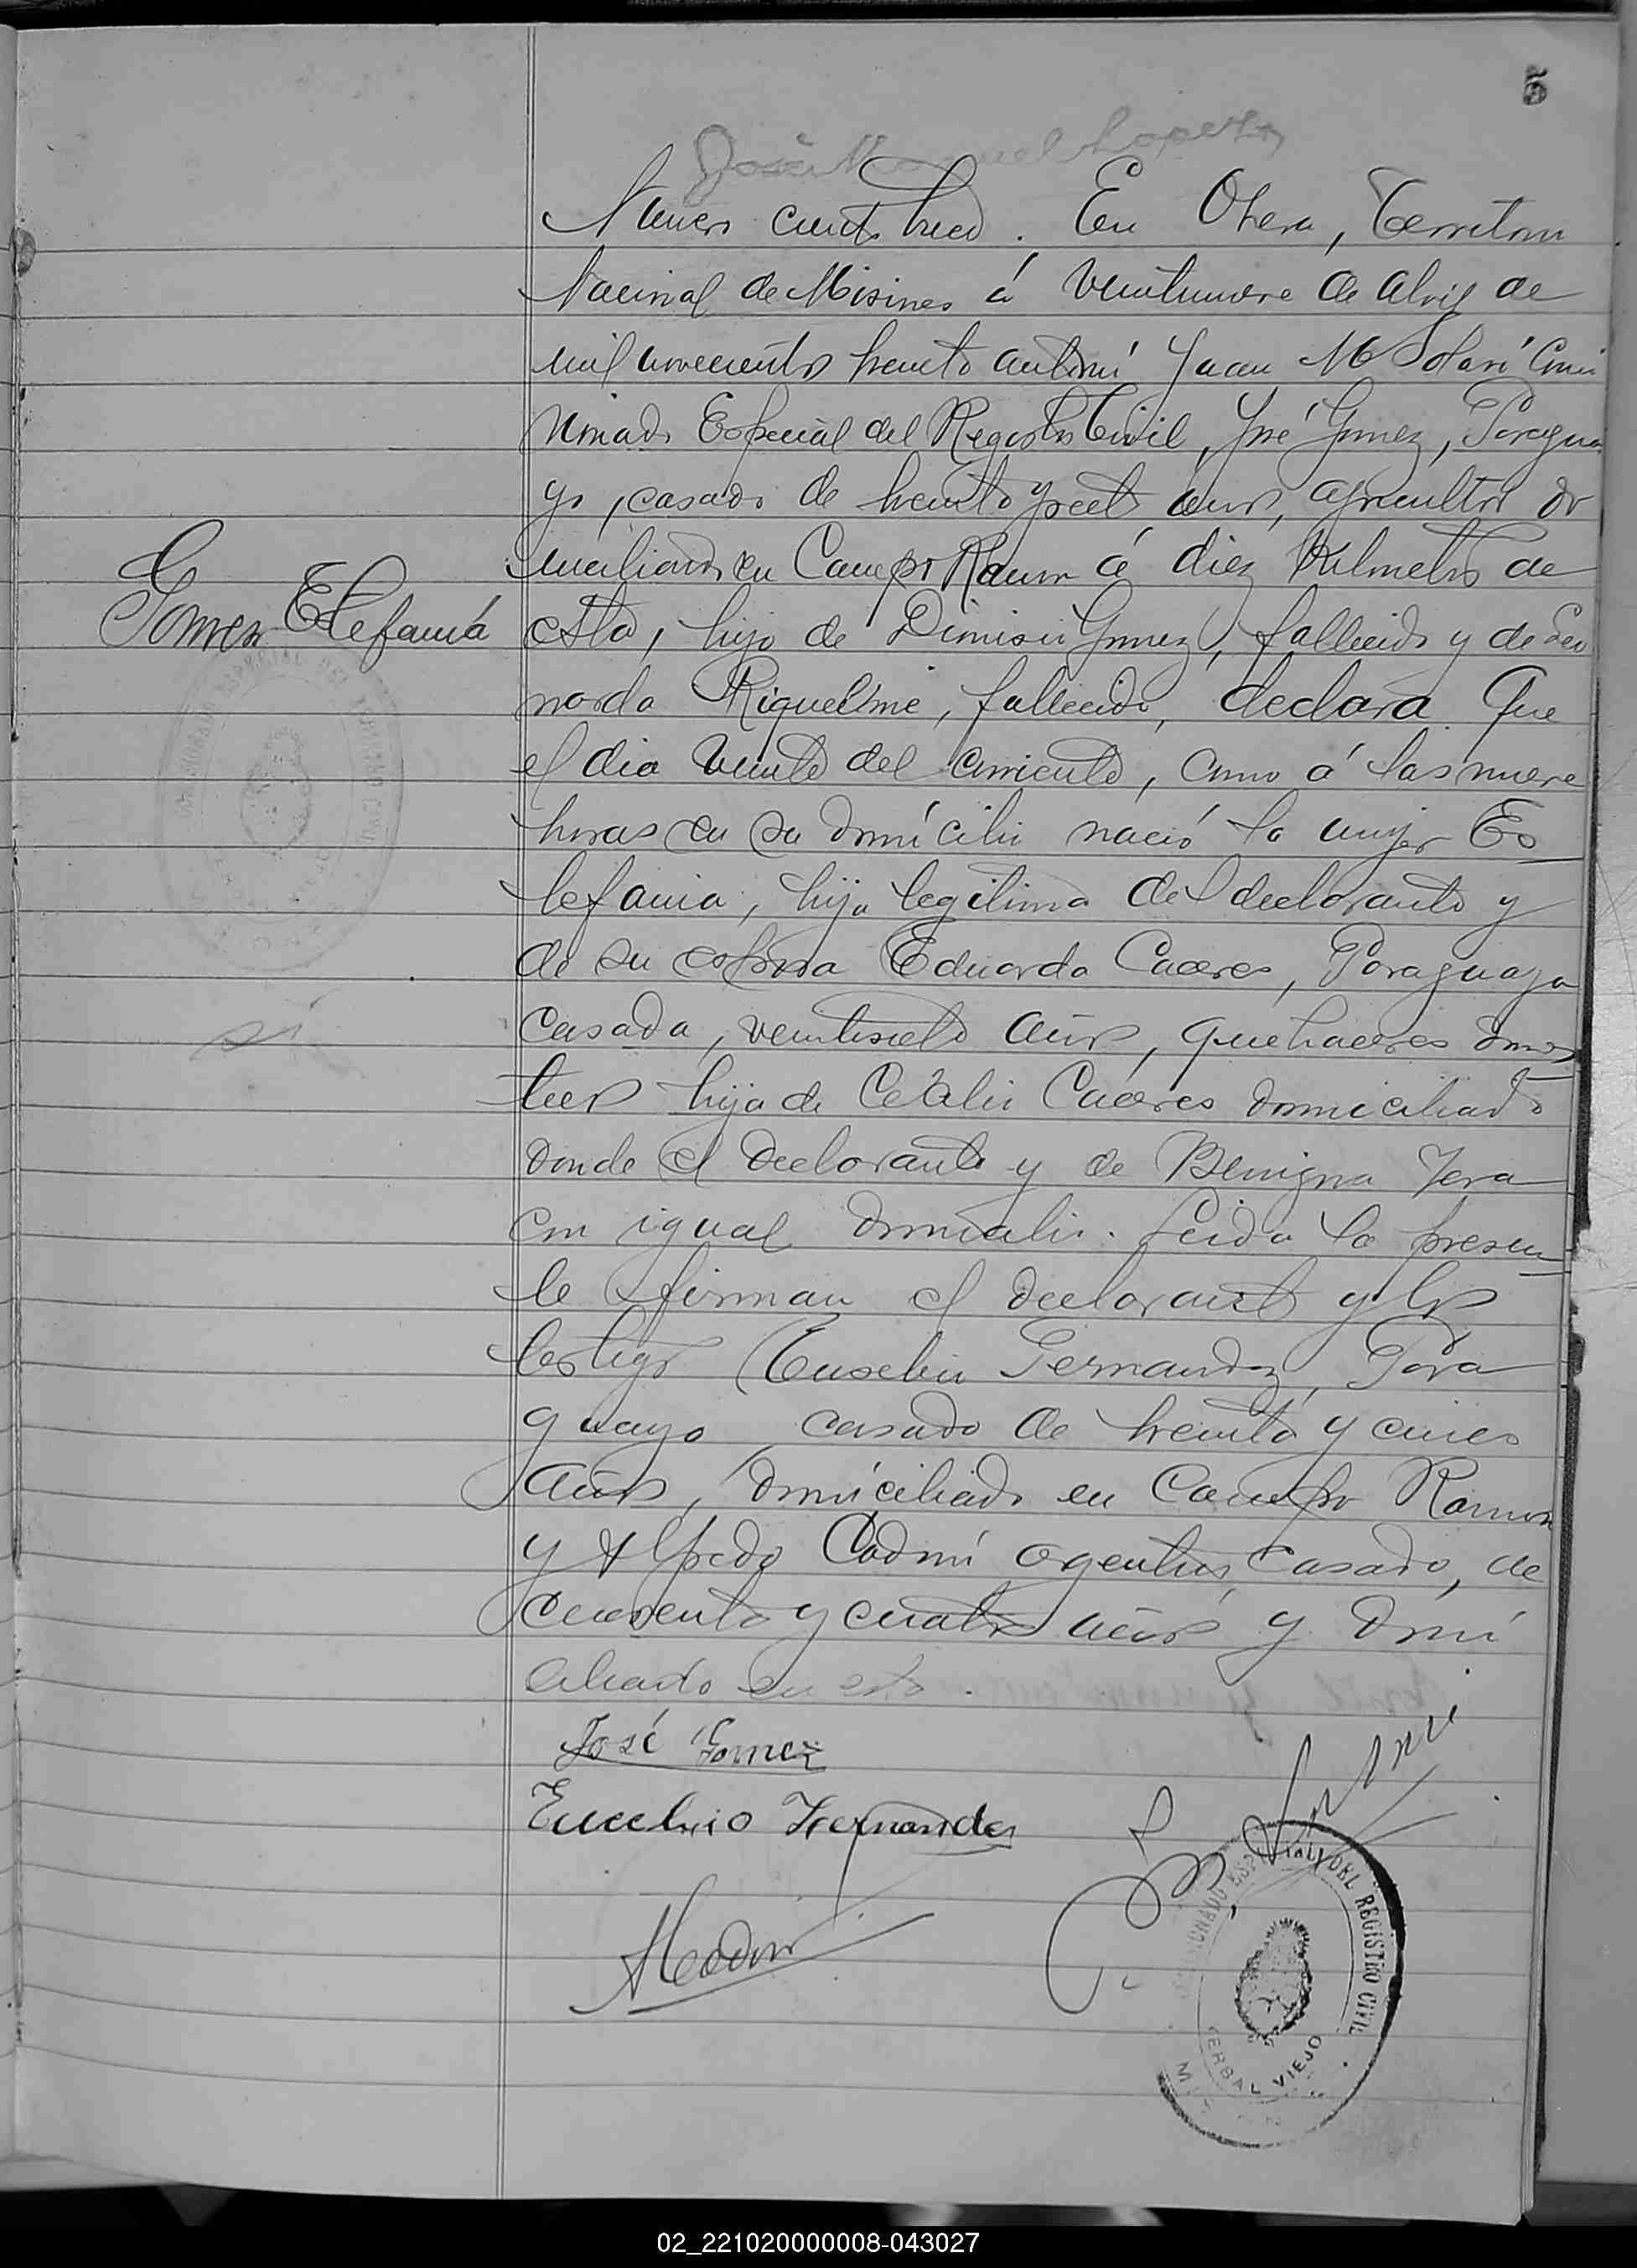 5
José Manuel Lopez
Numero ciento trece. En Obera, Territorio
Nacional de Misiones á veintinueve de abril de
mil novecientos treinta ante mi Juan M Solari Comi
sionado Especial del Registro Civil, José Gomez, Paragua
yo, casado de treinta y siete años, agricultor do
miciliado en Campo Ramon á diez kilometros de
Gomez Estefania
esta, hijo de Dionisio Gomez, fallecido y de Leo
narda Riquelme, fallecida, declara Que
el dia veinte del corriente, como á las nueve
horas en su domicilio nació la mujer Es
tefania, hija legitima del declarante y
de su esposa Eduarda Caceres, Paraguaya
casada, veintisiete años, quehaceres domes
ticos hija de Catalino Cáceres domiciliado
donde el declarante y de Benigna Vera
con igual domicilio. Leida la presen
te firman el declarante y los
testigos Eusebio Fernandez, Para
guayo casado de treinta y cinco
años, domiciliado en Campo Ramon
y Alfredo Codoni argentino, casado, de
cuarenta y cuatro años y domi
ciliado en esta.
José Gomez
Eucebio Fernandez
ACodoni
COMISIONADO ESPECIAL DEL REGISTRO CIVIL
YERBAL VIEJO
02_221020000008-043027